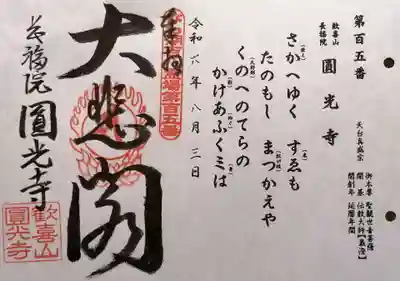 第百五番
天台真盛宗
御本尊 聖観世音菩薩
開基 伝教大師【最澄】
開創年 延暦年間
歓喜山
長福院
圓光寺
さかへゆく すゑも
たのもし まつかえや
くのへのてらの
かけあふくミは
令和六年八月三日
奉拝
大悲閣
長福院 圓光寺
歓喜山
圓光寺